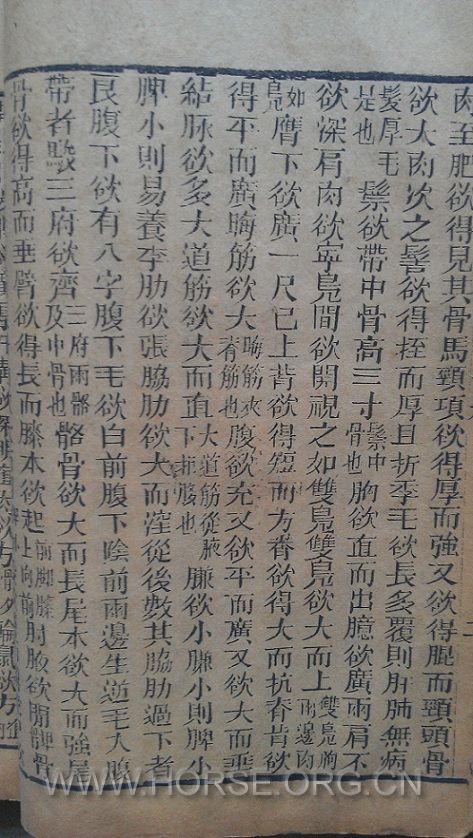 肉至肥欲得見其骨馬頸項欲得厚而強又欲得腽而頸頭骨
欲大肉次之髻欲得桎而厚且折季毛欲長多覆則肝肺無病
髮厚毛是也鬃欲帶中骨高三寸鬃中骨也胸欲直而出臆欲廣兩肩不
欲深肩肉欲寧鳧間欲開視之如雙鳧雙鳧欲大而上雙鳧胸兩邊肉
如鳧膺下欲廣一尺已上背欲得短而方脊欲得大而抗脊背欲
得平而廣晦筋欲大晦筋夾脊筋也腹欲充又欲平而廣又欲大而垂
結脉欲多大道筋欲大而直大道筋從腋下抵也膁欲小膁小則脾小
脾小則易養李肋欲張脇肋欲大而漥從後數其脇肋過下者
良腹下欲有八字腹下毛欲白前腹下陰前兩邊生逆毛入腹
帶者駿三府欲齊三府兩髂及中骨也骼骨欲大而長尾本欲大而強尾
骨欲得高而垂臂欲得長而膝本欲起前脚膝上向前肘腋欲開髀骨
WWW.HORSE.ORG.CN